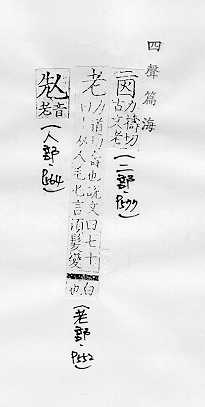 四聲篇海
力禱切
古文老
(二部.
老
力道切耆也說文曰七十
曰丨从人毛匕言須髮變
白也
(老部.P552)
音老
(人部.P564)